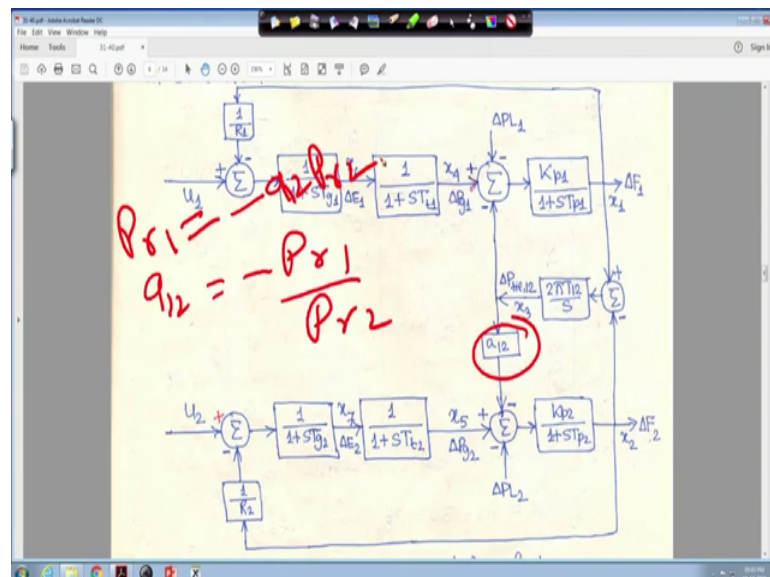 31-40.pdf - Adobe Acrobat Reader DC
File Edit View Window Help
Home Tools 31-40.pdf × Sign In
1/R1
ΔPL1
u1 + Σ - 1/1+STg1 ΔE1 1/1+STt1 x4 ΔPg1 + Σ - Kp1/1+STp1 ΔF1 x1
Pr1 = - a12 Pr2
a12 = - Pr1/Pr2
ΔPtie,12 x3 2πT12/S + Σ -
a12
u2 + Σ - 1/1+STg2 x7 ΔE2 1/1+STt2 x5 ΔPg2 + Σ - Kp2/1+STp2 ΔF2 x2
ΔPL2
1/R2